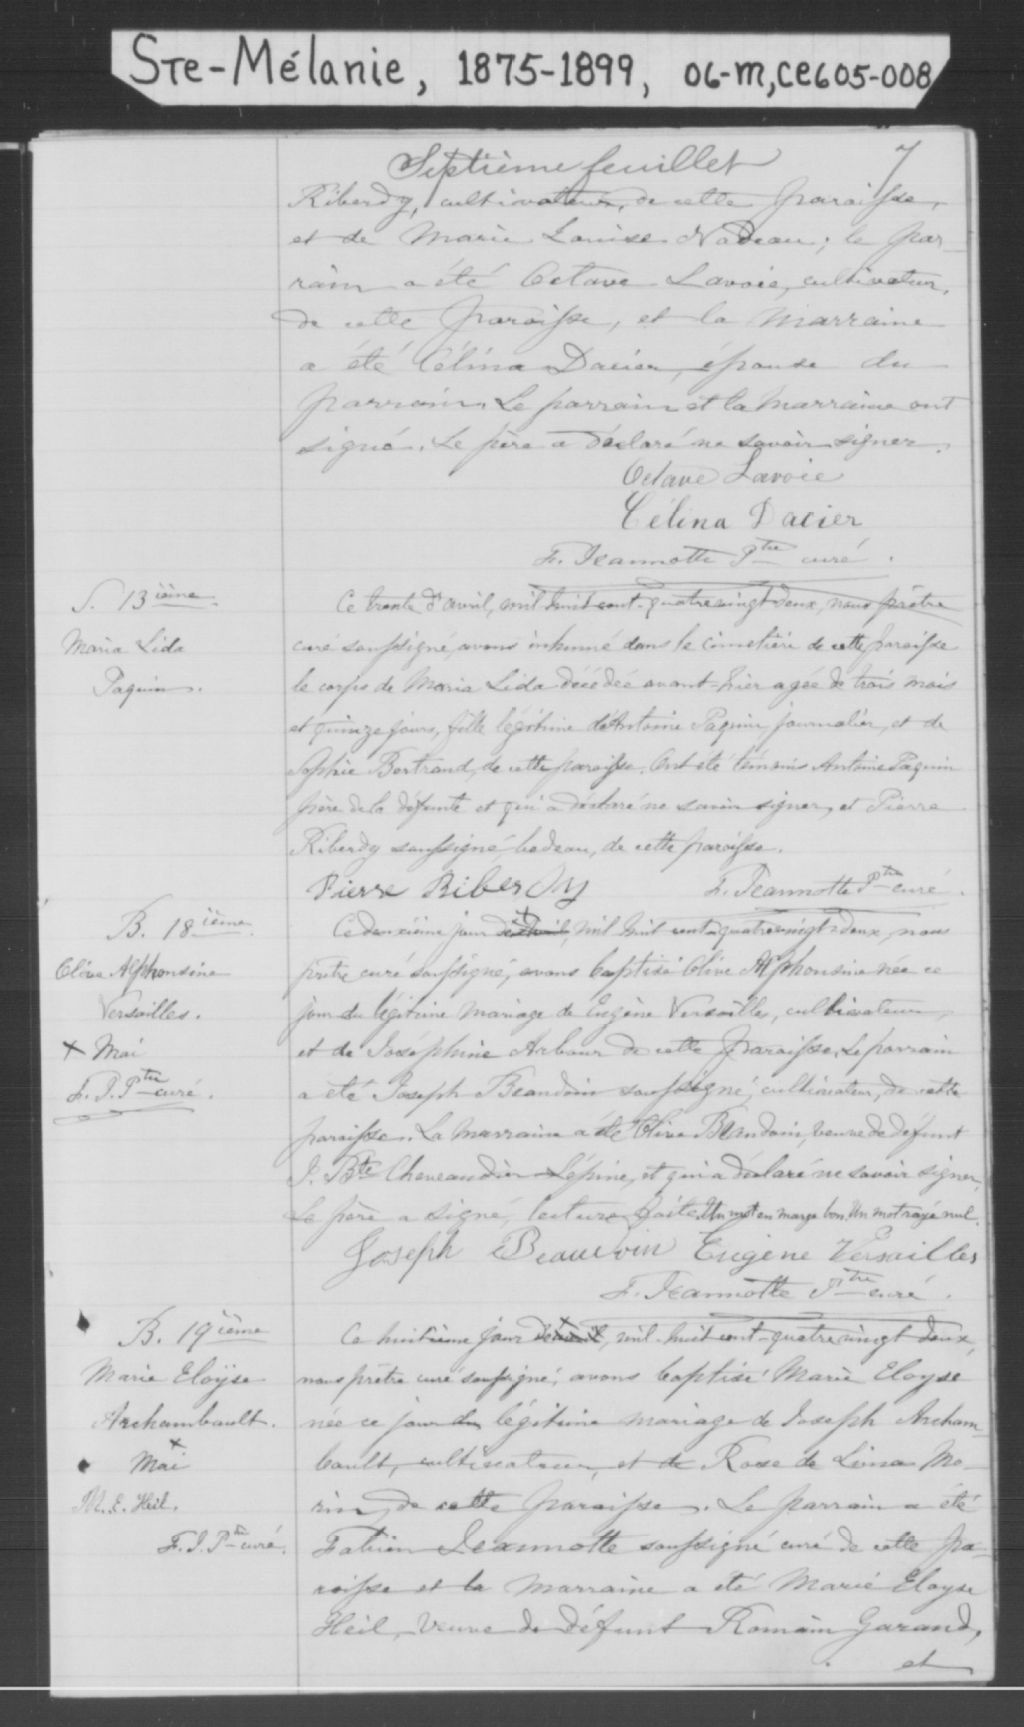 Ste-Mélanie, 1875-1899, 06-M,CE605-008
Septième feuillet 7
Riberdy, cultivateur, de cette paroisse,
et de Marie Louise Nadeau; le par-
rain a été Octave Lavoie, cultivateur,
de cette paroisse, et la marraine
a été Célina Dacier, épouse du
parrain. Le parrain et la marraine ont
signé. Le père a déclaré ne savoir signer.
Octave Lavoie
Célina Dacier
F. Jeannotte Ptre curé.
S. 13ième
Maria Lida
Paquin.
Ce trente d'avril, mil huit cent-quatrevingt deux, nous prêtre
curé soussigné, avons inhumé dans le cimetière de cette paroisse
le corps de Maria Lida décédée avant-hier agée de trois mois
et quinze jours, fille légitime d'Antoine Paquin, journalier, et de
Sophie Bertrand, de cette paroisse. Ont été témoins Antoine Paquin
père de la défunte et qui a déclaré ne savoir signer, et Pierre
Riberdy soussigné, bedeau, de cette paroisse.
Pierre Riberdy F. Jeannotte Ptre curé.
B. 18ième
Olive Alphonsine
Versailles.
x Mai
F. J. Ptre curé.
Ce deuxième jour d'avril x, mil huit cent-quatrevingt-deux, nous
prêtre curé soussigné, avons baptisé Olive Alphonsine née ce
jour du légitime mariage de Eugène Versailles, cultivateur,
et de Joséphine Arbour de cette paroisse. Le parrain
a été Joseph Beaudoin soussigné, cultivateur, de cette
paroisse. La marraine a été Olive Beaudoin, veuve de défunt
J. Bte Cheveaudier Lépine, et qui a déclaré ne savoir signer.
Le père a signé, lecture faite. Un mot en marge bon. Un mot rayé nul.
Joseph Beaudoin Eugène Versailles
F. Jeannotte Ptre curé.
B. 19ième
Marie Eloÿse
Archambault.
x
Mai
M. E. Heil.
F. J. Ptre curé.
Ce huitième jour d'avril x, mil-huit cent-quatrevingt deux,
nous prêtre curé soussigné, avons baptisé Marie Eloyse
née ce jour du légitime mariage de Joseph Archam-
bault, cultivateur, et de Rose de Lima Mo-
rin, de cette paroisse. Le parrain a été
Fabien Jeannotte soussigné curé de cette pa-
roisse et la marraine a été Marie Eloyse
Heil, veuve de défunt Romain Garand,
et